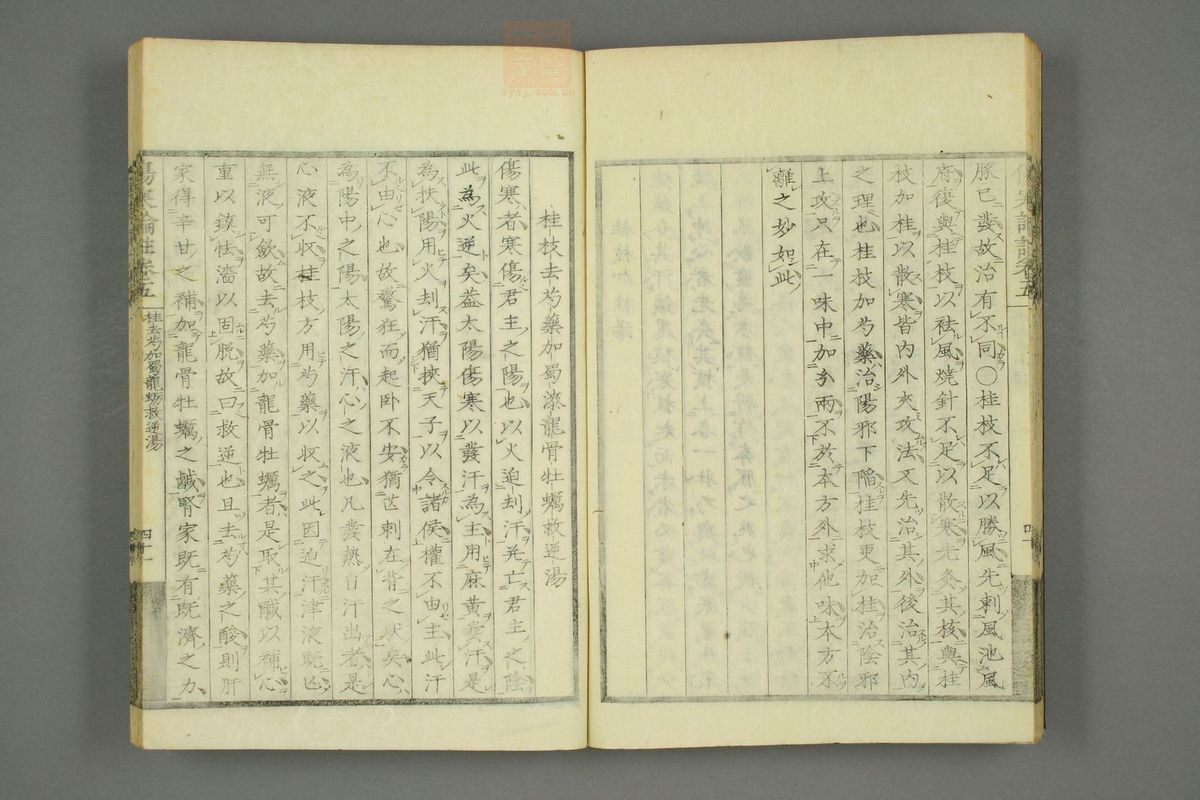 豚已發故治有不同○桂枝不足以勝風先刺風池風
府復與桂枝以袪風燒針不足以散寒先灸其核與桂
枝加桂以散寒皆内外夾攻法又先治其外後治其内
之理也桂枝加芍藥治陽邪下陷桂枝更加桂治陰邪
上攻只在一味中加分兩不於本方外求他味本方不
離之妙如此
桂枝去芍藥加蜀漆龍骨牡蠣救逆湯
傷寒者寒傷君主之陽也以火迫刦汗並亡君主之陰
此爲火逆矣葢太陽傷寒以發汗為主用麻黄發汗是
為扶陽用火刦汗猶挾天子以令諸侯權不由主此汗
不由心也故驚狂而起卧不安猶芒刺在背之狀矣心
為陽中之陽太陽之汗心之液也凡發熱自汗出者是
心液不收桂枝方用芍藥以收之此因迫汗津液既亡
無液可歛故去芍藥加龍骨牡蠣者是取其醎以補心
重以鎮怯濇以固脱故曰救逆也且去芍藥之酸則肝
家得辛甘之補加龍骨牡蠣之鹹腎家既有既濟之力
傷寒論註卷五
桂去芍加蜀龍蛎救逆湯
四十一